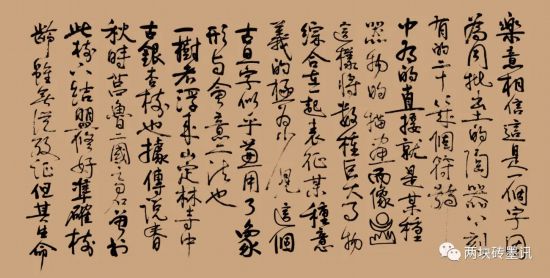 樂意相信這是一個字因
為同批出土的陶器上刻
有的二十餘個符號
中有的直接就是某種
器物的描畫而像
這樣將数種巨大事物
綜合在一起表征某種意
義的極為少見這個
古旦字似乎並用了象
形与會意二法也
一樹者浮来山定林寺中
古銀杏樹也據傳說春
秋時莒魯二國之君曾於
此樹下結盟修好準確樹
齡雖無從考证但其生命
两块砖墨讯